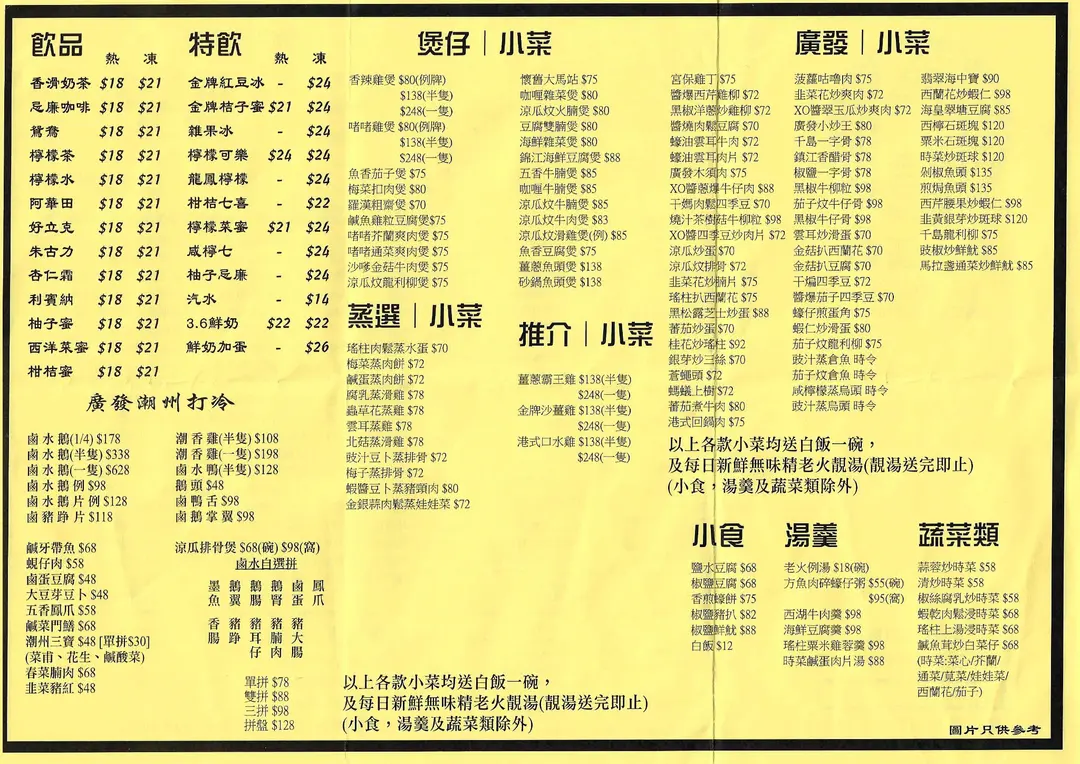 飲品
熱 凍
香滑奶茶 $18 $21
忌廉咖啡 $18 $21
鴛鴦 $18 $21
檸檬茶 $18 $21
檸檬水 $18 $21
阿華田 $18 $21
好立克 $18 $21
朱古力 $18 $21
杏仁霜 $18 $21
利賓納 $18 $21
柚子蜜 $18 $21
西洋菜蜜 $18 $21
柑桔蜜 $18 $21
特飲
熱 凍
金牌紅豆冰 - $24
金牌桔子蜜 $21 $24
雜果冰 - $24
檸檬可樂 $24 $24
龍鳳檸檬 - $24
柑桔七喜 - $22
檸檬菜蜜 $21 $24
咸檸七 - $24
柚子忌廉 - $24
汽水 - $14
3.6鮮奶 $22 $22
鮮奶加蛋 - $26
廣發潮州打冷
鹵水鵝(1/4) $178
鹵水鵝(半隻) $338
鹵水鵝(一隻) $628
鹵水鵝例 $98
鹵水鵝片例 $128
鹵豬踭片 $118
潮香雞(半隻) $108
潮香雞(一隻) $198
鹵水鴨(半隻) $128
鵝頭 $48
鹵鴨舌 $98
鹵鵝掌翼 $98
鹹牙帶魚 $68
蜆仔肉 $58
鹵蛋豆腐 $48
大豆芽豆卜 $48
五香鳳爪 $58
鹹菜門鱔 $68
潮州三寶 $48 [單拼$30]
(菜甫、花生、鹹酸菜)
春菜腩肉 $68
韭菜豬紅 $48
涼瓜排骨煲 $68(碗) $98(窩)
鹵水自選拼
墨魚 鵝翼 鵝腸 鵝腎 鹵蛋 鳳爪
香腸 豬踭 豬耳仔 豬腩肉 豬大腸
單拼 $78
雙拼 $88
三拼 $98
拼盤 $128
煲仔｜小菜
香辣雞煲 $80(例牌)
$138(半隻)
$248(一隻)
啫啫雞煲 $80(例牌)
$138(半隻)
$248(一隻)
魚香茄子煲 $75
梅菜扣肉煲 $80
羅漢粗齋煲 $70
鹹魚雞粒豆腐煲$75
啫啫芥蘭爽肉煲 $75
啫啫通菜爽肉煲 $75
沙嗲金菇牛肉煲 $75
涼瓜炆龍利柳煲 $75
懷舊大馬站 $75
咖喱雜菜煲 $80
涼瓜炆火腩煲 $80
豆腐雙腩煲 $80
海鮮雜菜煲 $80
錦江海鮮豆腐煲 $88
五香牛腩煲 $85
咖喱牛腩煲 $85
涼瓜炆牛腩煲 $85
涼瓜炆牛肉煲 $83
涼瓜炆滑雞煲(例) $85
魚香豆腐煲 $75
薑蔥魚頭煲 $138
砂鍋魚頭煲 $138
蒸選｜小菜
瑤柱肉鬆蒸水蛋 $70
梅菜蒸肉餅 $72
鹹蛋蒸肉餅 $72
腐乳蒸滑雞 $78
蟲草花蒸雞 $78
雲耳蒸雞 $78
北菇蒸滑雞 $78
豉汁豆卜蒸排骨 $72
梅子蒸排骨 $72
蝦醬豆卜蒸豬頸肉 $80
金銀蒜肉鬆蒸娃娃菜 $72
推介｜小菜
薑蔥霸王雞 $138(半隻)
$248(一隻)
金牌沙薑雞 $138(半隻)
$248(一隻)
港式口水雞 $138(半隻)
$248(一隻)
以上各款小菜均送白飯一碗，
及每日新鮮無味精老火靚湯(靚湯送完即止)
(小食，湯羹及蔬菜類除外)
廣發｜小菜
宮保雞丁 $75
醬爆西芹雞柳 $72
黑椒洋蔥炒雞柳 $72
醬燒肉鬆豆腐 $70
蠔油雲耳牛肉 $72
蠔油雲耳肉片 $72
廣發木須肉 $75
XO醬蔥爆牛仔肉 $88
干媽肉鬆四季豆 $70
燒汁茶樹菇牛柳粒 $98
XO醬四季豆炒肉片 $72
涼瓜炒蛋 $70
涼瓜炆排骨 $72
韭菜花炒腩片 $75
瑤柱扒西蘭花 $75
黑松露芝士炒蛋 $88
蕃茄炒蛋 $70
桂花炒瑤柱 $92
銀芽炒三絲 $70
蒼蠅頭 $72
螞蟻上樹 $72
蕃茄煮牛肉 $80
港式回鍋肉 $75
菠蘿咕嚕肉 $75
韭菜花炒爽肉 $72
XO醬翠玉瓜炒爽肉 $72
廣發小炒王 $80
千島一字骨 $78
鎮江香醋骨 $78
椒鹽一字骨 $78
黑椒牛柳粒 $98
茄子炆牛仔骨 $98
黑椒牛仔骨 $98
雲耳炒滑蛋 $70
金菇扒西蘭花 $70
金菇扒豆腐 $70
干煸四季豆 $72
醬爆茄子四季豆 $70
蠔仔煎蛋角 $75
蝦仁炒滑蛋 $80
茄子炆龍利柳 $75
豉汁蒸倉魚 時令
茄子炆倉魚 時令
咸檸檬蒸烏頭 時令
豉汁蒸烏頭 時令
翡翠海中寶 $90
西蘭花炒蝦仁 $98
海皇翠塘豆腐 $85
西檸石斑塊 $120
粟米石斑塊 $120
時菜炒斑球 $120
剁椒魚頭 $135
煎焗魚頭 $135
西芹腰果炒蝦仁 $98
韭黃銀芽炒斑球 $120
千島龍利柳 $75
豉椒炒鮮魷 $85
馬拉盞通菜炒鮮魷 $85
以上各款小菜均送白飯一碗，
及每日新鮮無味精老火靚湯(靚湯送完即止)
(小食，湯羹及蔬菜類除外)
小食
鹽水豆腐 $68
椒鹽豆腐 $68
香煎蠔餅 $75
椒鹽豬扒 $82
椒鹽鮮魷 $88
白飯 $12
湯羹
老火例湯 $18(碗)
方魚肉碎蠔仔粥 $55(碗)
$95(窩)
西湖牛肉羹 $98
海鮮豆腐羹 $98
瑤柱粟米雞蓉羹 $98
時菜鹹蛋肉片湯 $88
蔬菜類
蒜蓉炒時菜 $58
清炒時菜 $58
椒絲腐乳炒時菜 $58
蝦乾肉鬆浸時菜 $68
瑤柱上湯浸時菜 $68
鹹魚茸炒白菜仔 $68
(時菜:菜心/芥蘭/
通菜/莧菜/娃娃菜/
西蘭花/茄子)
圖片只供參考